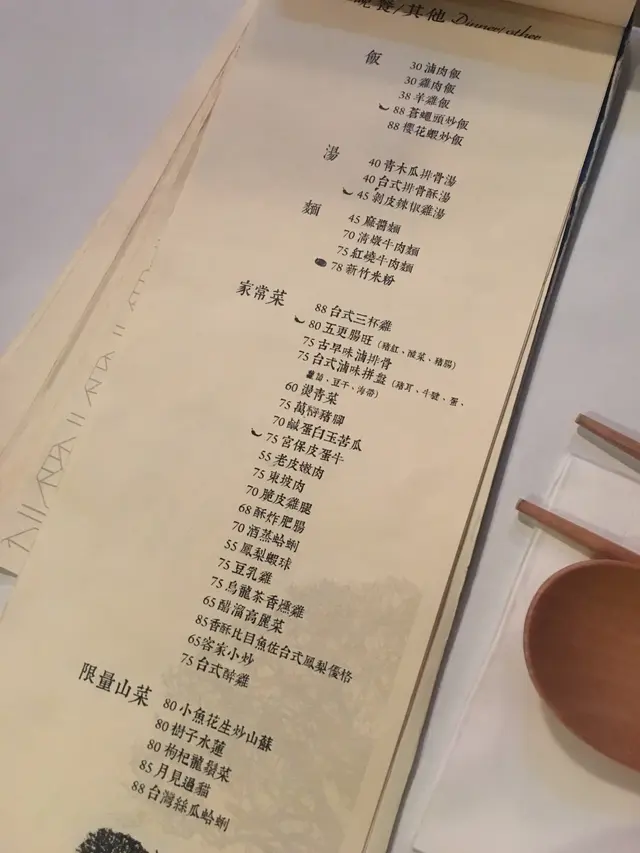 晚餐/其他 Dinner/other
飯
30 滷肉飯
30 雞肉飯
38 羊雞飯
88 蒼蠅頭炒飯
88 櫻花蝦炒飯
湯
40 青木瓜排骨湯
40 台式排骨酥湯
45 剝皮辣椒雞湯
麵
45 麻醬麵
70 清燉牛肉麵
75 紅燒牛肉麵
78 新竹米粉
家常菜
88 台式三杯雞
80 五更腸旺 (豬紅、酸菜、豬腸)
75 古早味滷排骨
75 台式滷味拼盤 (豬耳、牛腱、蛋、
豆干、海帶)
60 燙青菜
75 萬巒豬腳
70 鹹蛋白玉苦瓜
75 宮保皮蛋牛
55 老皮嫩肉
75 東坡肉
70 脆皮雞腿
68 酥炸肥腸
70 酒蒸蛤蜊
55 鳳梨蝦球
75 豆乳雞
75 烏龍茶香燻雞
65 醋溜高麗菜
85 香酥比目魚佐台式鳳梨優格
65 客家小炒
75 台式醉雞
限量山菜
80 小魚花生炒山蘇
80 樹子水蓮
80 枸杞龍鬚菜
85 月見過貓
88 台灣絲瓜蛤蜊